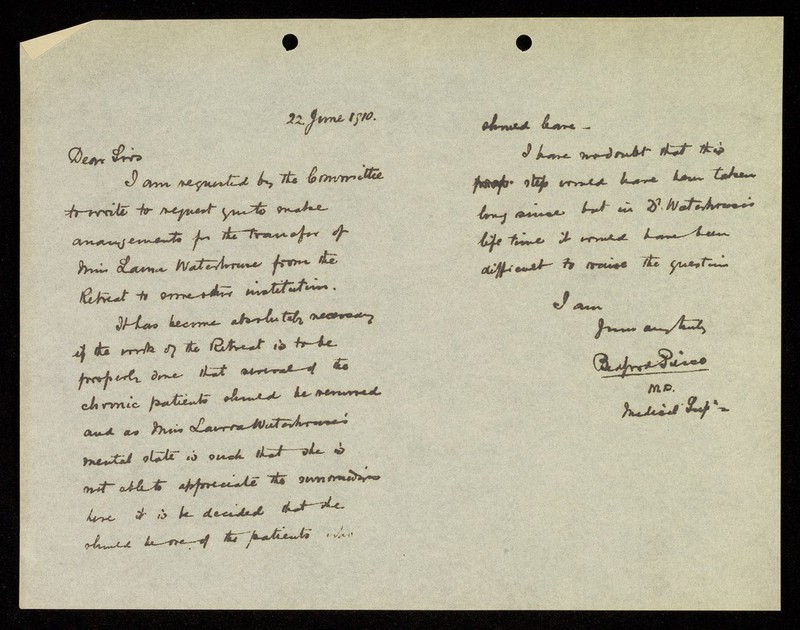 22 June 1910.
Dear Sirs
I am requested by the Committee
to write to request you to make
arrangements for the transfer of
Miss Laura Waterhouse from the
Retreat to some other institution.
It has become absolutely necessary
if the work of the Retreat is to be
properly done that several of the
chronic patients should be removed
and as Miss Laura Waterhouse's
mental state is such that she is
not able to appreciate the surroundings
here it is be decided that she
should be one of the patients who
should leave -
I have no doubt that this
step would have been taken
long since but in Dr Waterhouse's
life time it would have been
difficult to raise the question
I am
Yours very truly
Bedford Pierce
M.D.
Medical Supt